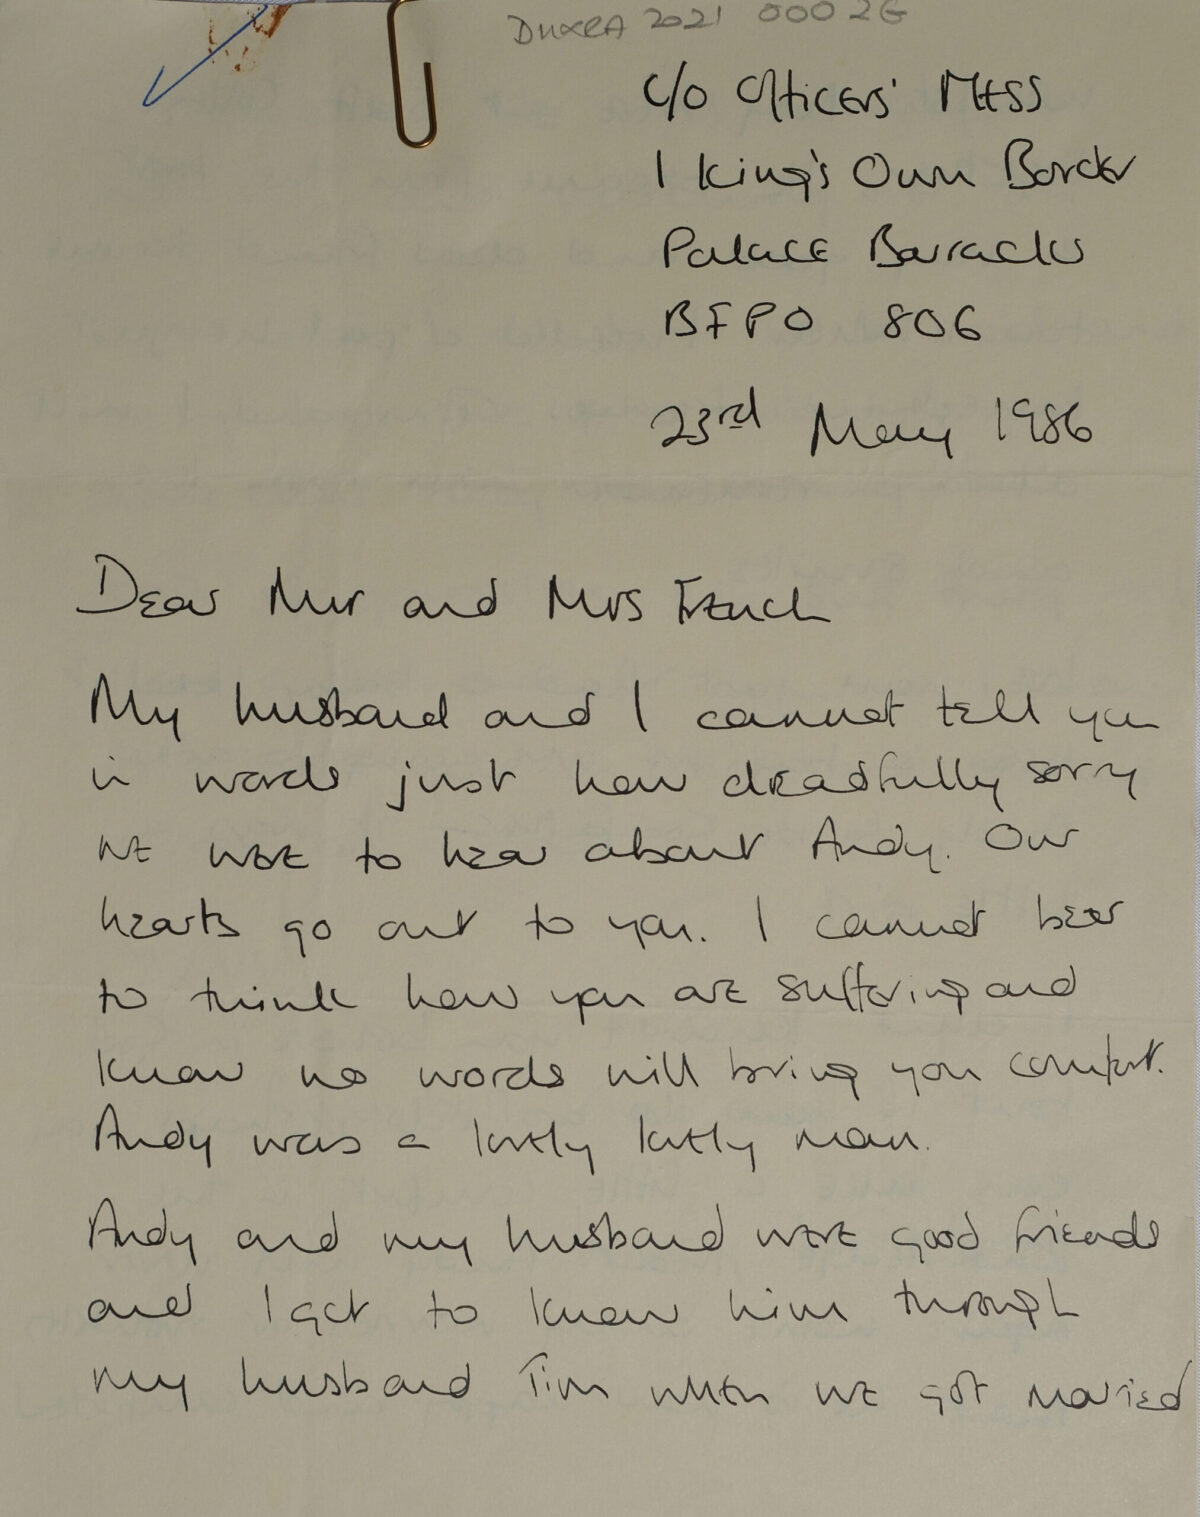 DUXRA 2021 0002G
C/O Officers' Mess
1 King's Own Border
Palace Barracks
BFPO 806
23rd May 1986
Dear Mr and Mrs French
My husband and I cannot tell you
in words just how dreadfully sorry
we were to hear about Andy. Our
hearts go out to you. I cannot bear
to think how you are suffering and
know no words will bring you comfort.
Andy was a lovely lovely man.
Andy and my husband were good friends
and I got to know him through
my husband Tim when we got married